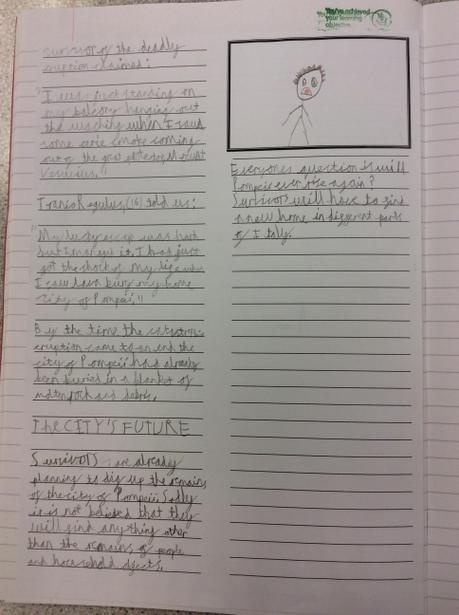 You've achieved
your learning
objective.
survivor of the deadly
eruption claimed:
"I was just standing on
my balcony hanging out
the washing when I saw
some eerie smoke coming
out of the great Mount
Vesuvius."
Regulus, (16) told us:
"My escape was hard
but I managed it. I had just
got the shock of my life when
I saw lava bury my home
city of Pompeii."
By the time the
eruption came to an end the
city of Pompeii had already
been buried in a blanket of
molten rock and debris.
THE CITY'S FUTURE
Survivors are already
planning to dig up the remains
of the city of Pompeii. Sadly
it is not believed that they
will find anything other
than the remains of people
and household objects.
Everyones question is will
Pompeii ever rise again?
Survivors will have to find
a new home in different parts
of Italy.